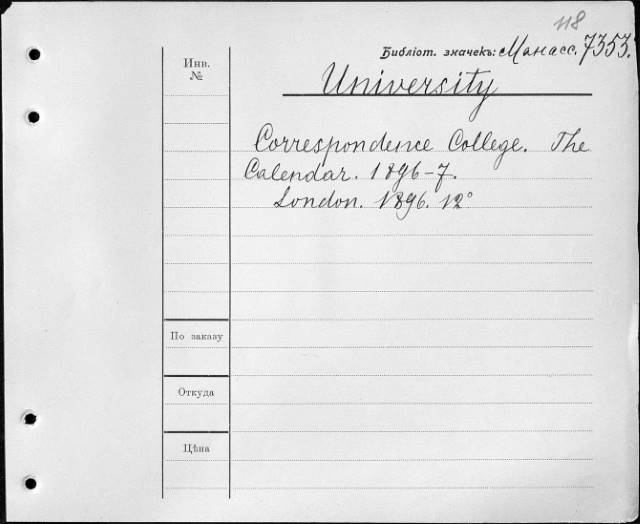 118
Библіот. значекъ: Манасс. 7353.
Инв.
№
University
Correspondence College. The
Calendar. 1896-7.
London. 1896. 12°
По заказу
Откуда
Цѣна